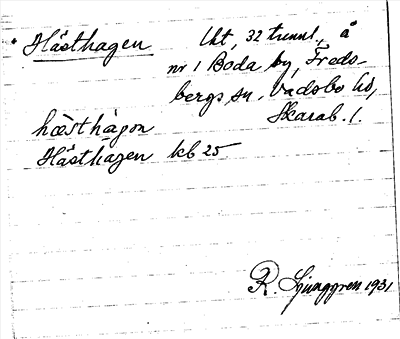 Hästhagen lht, 32 tunnl., å
nr 1 Boda by, Freds-
bergs sn, Vadsbo hd,
Skarab. l.
hæ̀sthàgon
Hästhagen kb 25
R. Ljunggren 1931